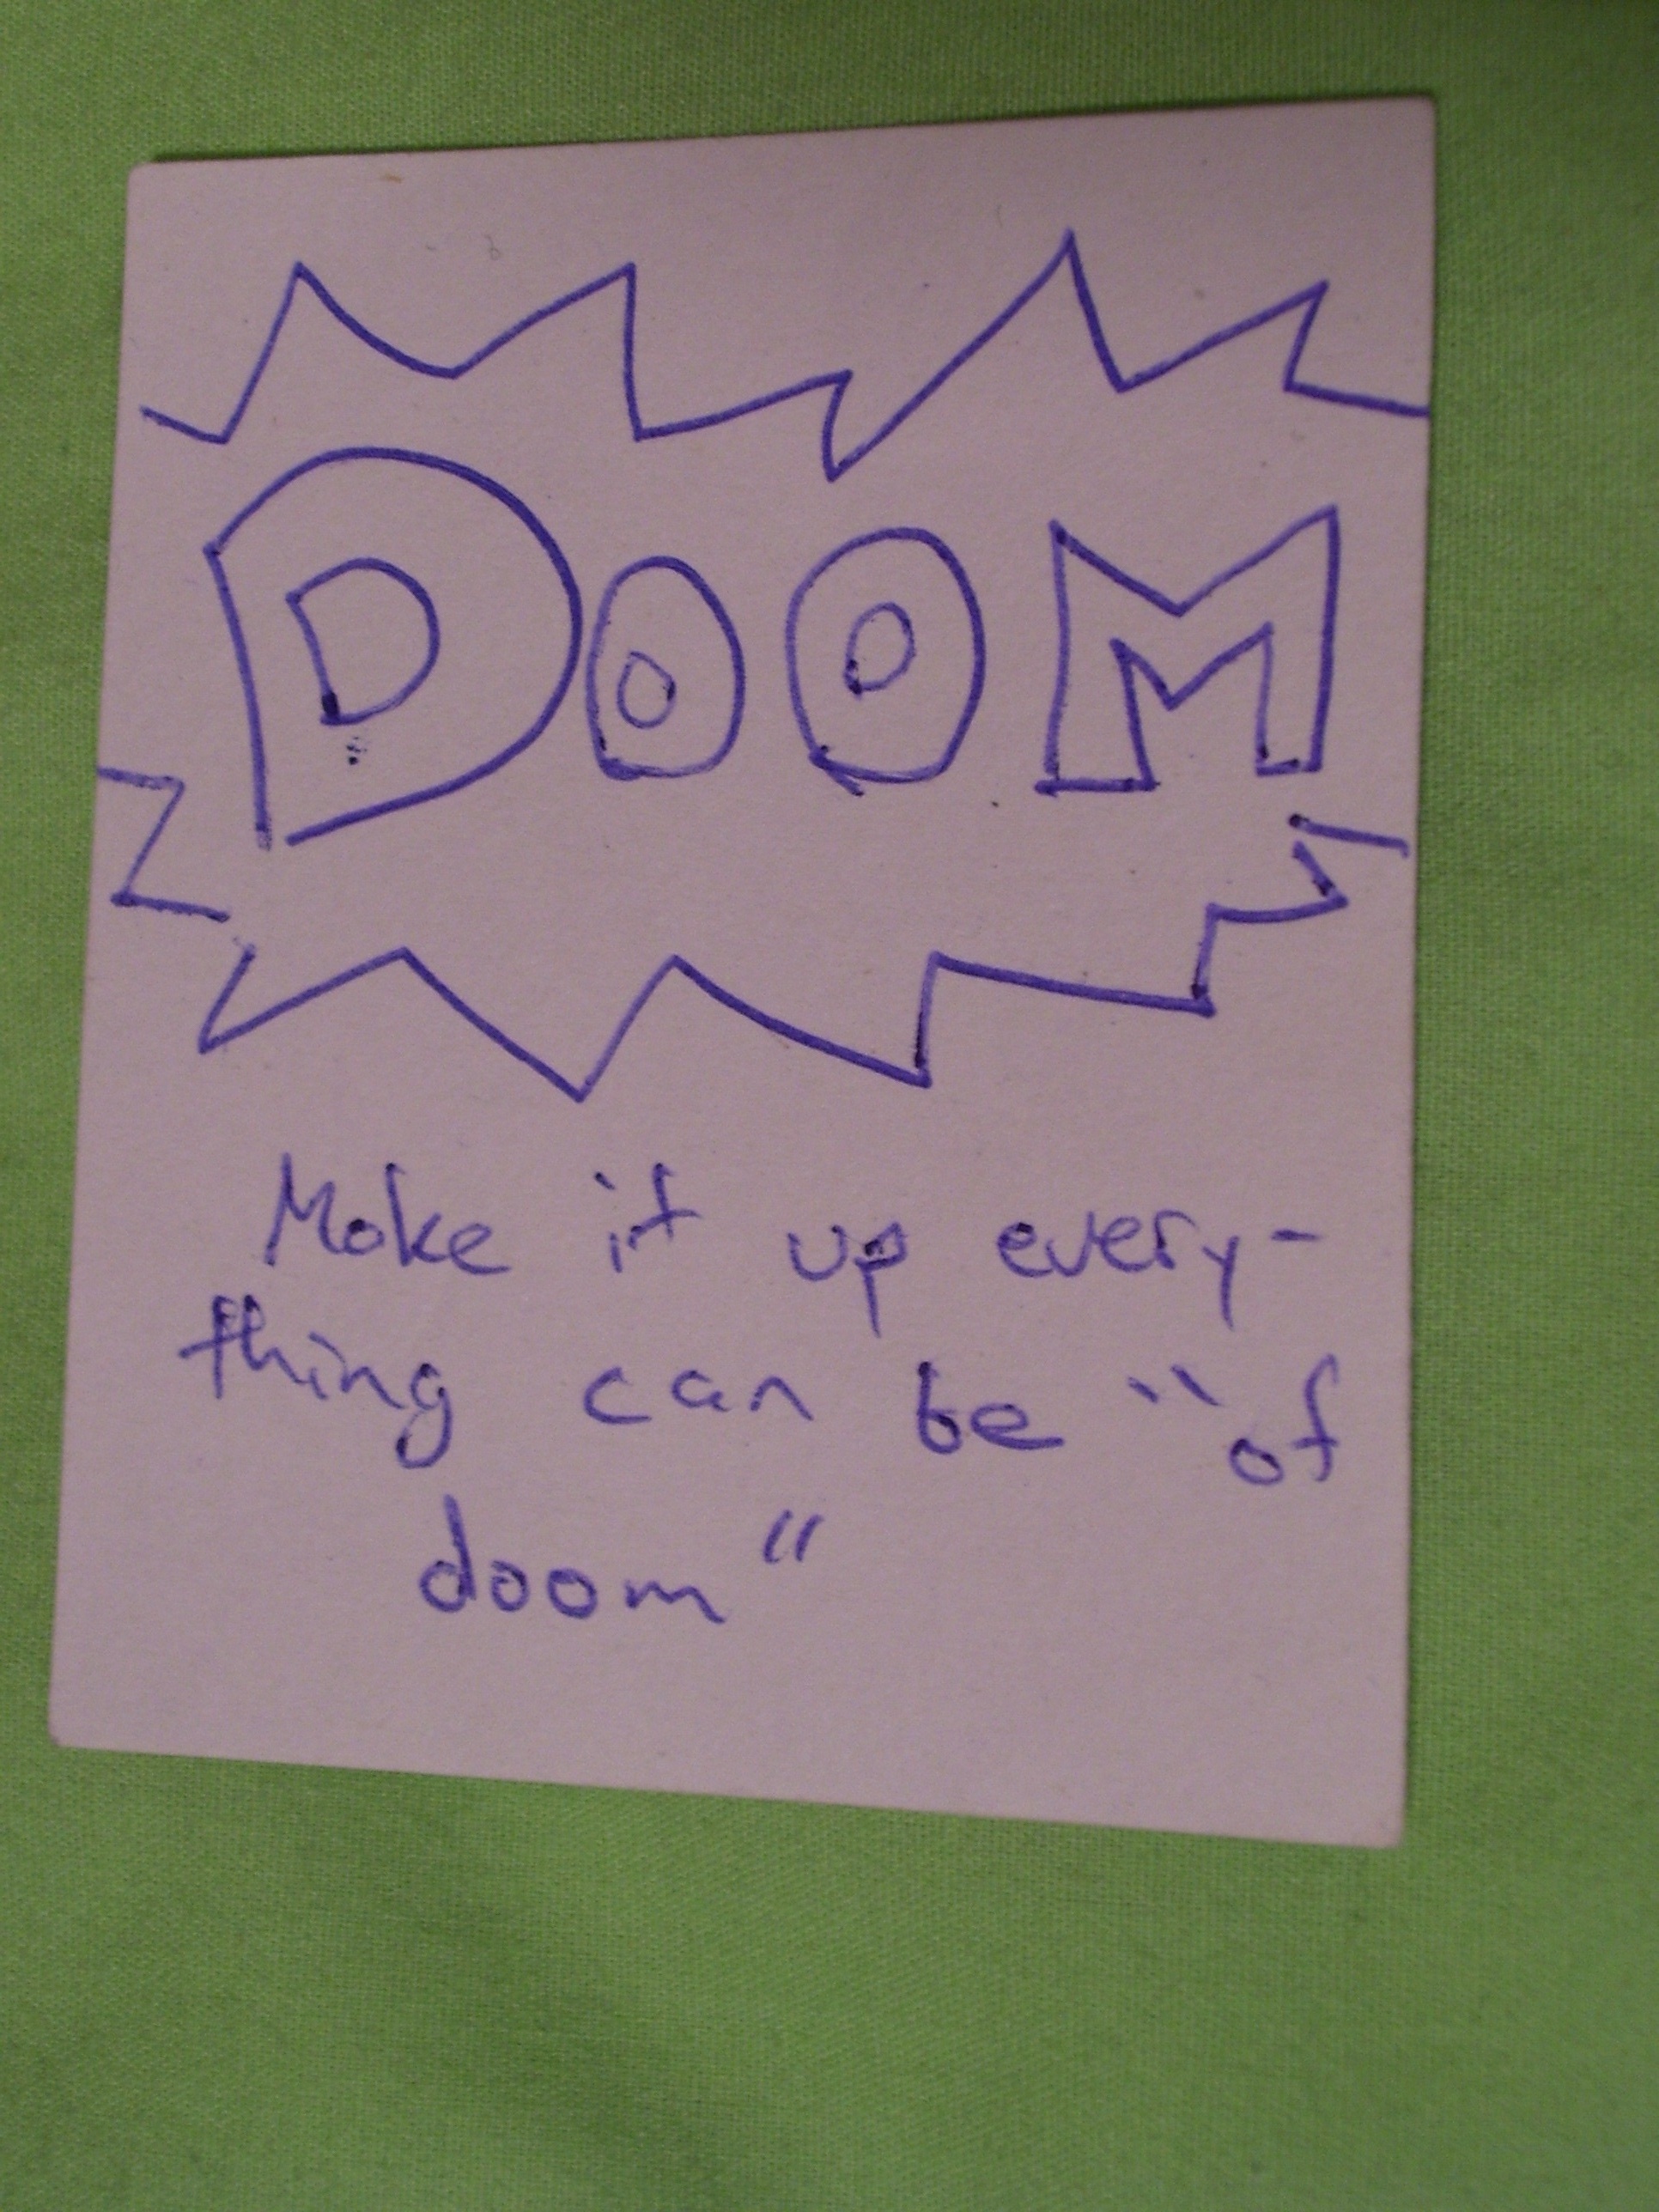 DOOM
Make it up every-
thing can be "of
doom"